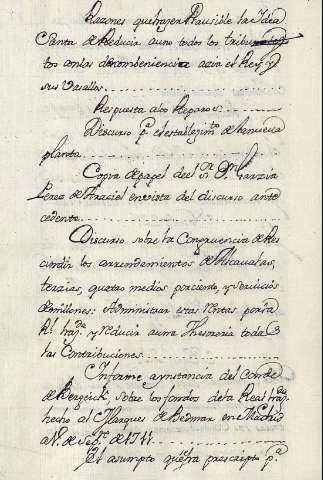 Razones que hazen Plausible la Idea
Santa de Reducir a uno todos los tributos
tomas
sus Vasallos
Respuesta a los Reparos
Discurso p.a el establezim.to de la nueva
planta
Copia de papel del S.r D.n Garzia
Perez de Araziel en vista del discurso ante
cedente
Discurso sobre la Congruencia de Res
cindir los arrendamientos de Alcavalas,
terzias, quatro medios por ciento, y servicios
de millones: Administrar estas Rentas por la
R.l haz.da y reducir a una Thesoreria todas
las Contribuciones
Informe a ynstancia del Conde
de Bergeick, sobre los fondos de la Real haz.da
hecho al Marques de Bedmar en Madrid
de Sep.re de 1711
El asumpto que era prescripto p.a